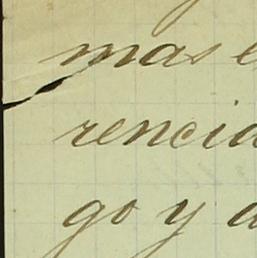 mas e
rencia
go y a